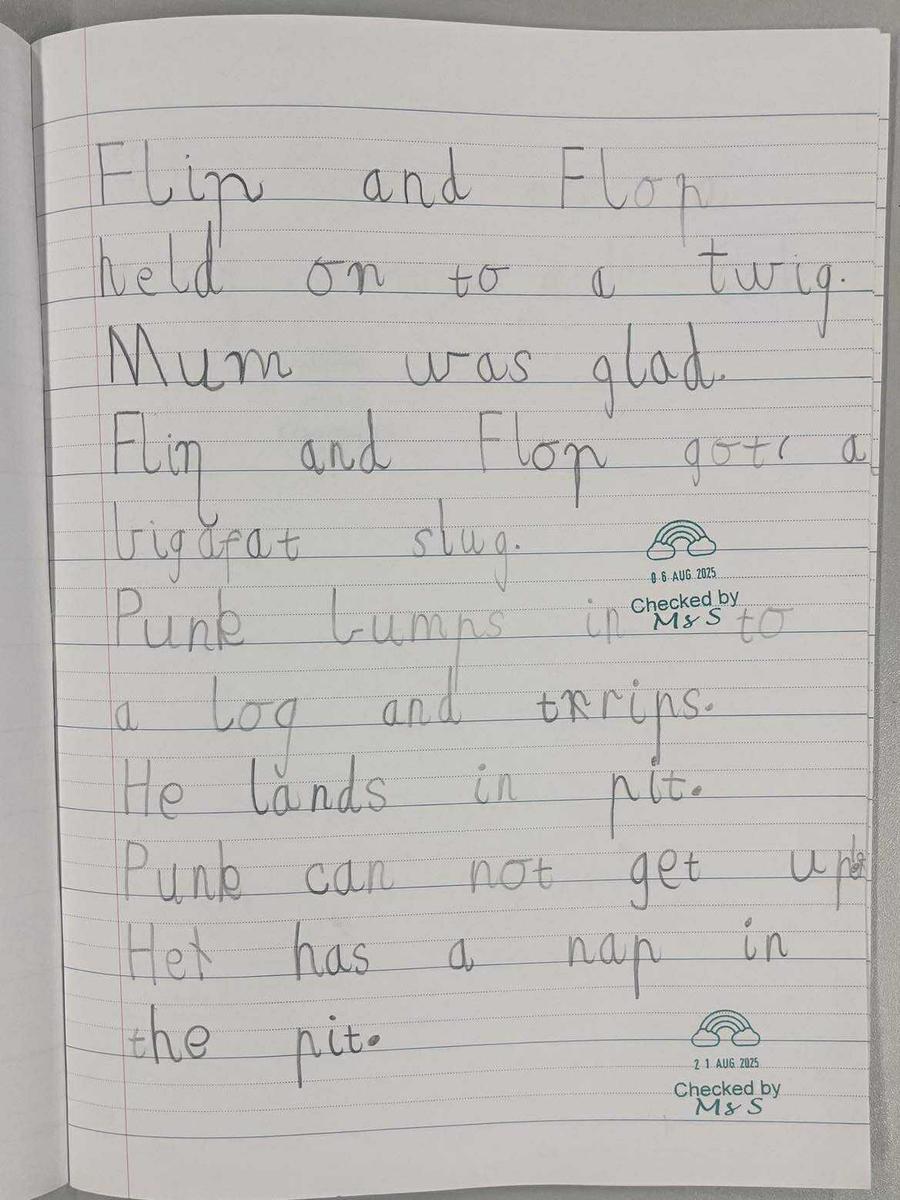 Flip and Flop
held on to a twig.
Mum was glad.
Flip and Flop got a
big fat slug.
06 AUG 2025
Checked by
Ms S
Punk bumps in to
a log and trips.
He lands in pit.
Punk can not get up
He has a nap in
the pit.
21 AUG 2025
Checked by
Ms S